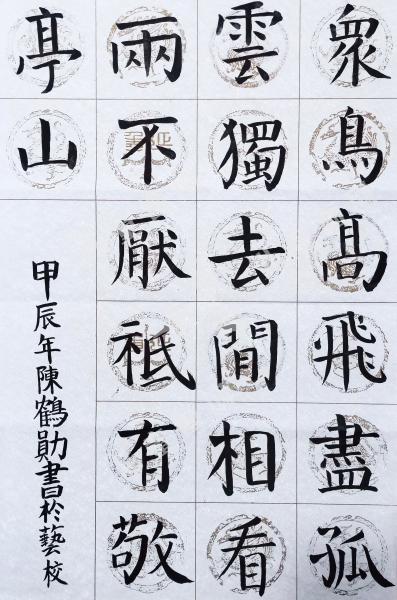 眾鳥高飛盡孤
雲獨去閒相看
兩不厭祗有敬
亭山
甲辰年陳鶴勛書於藝校